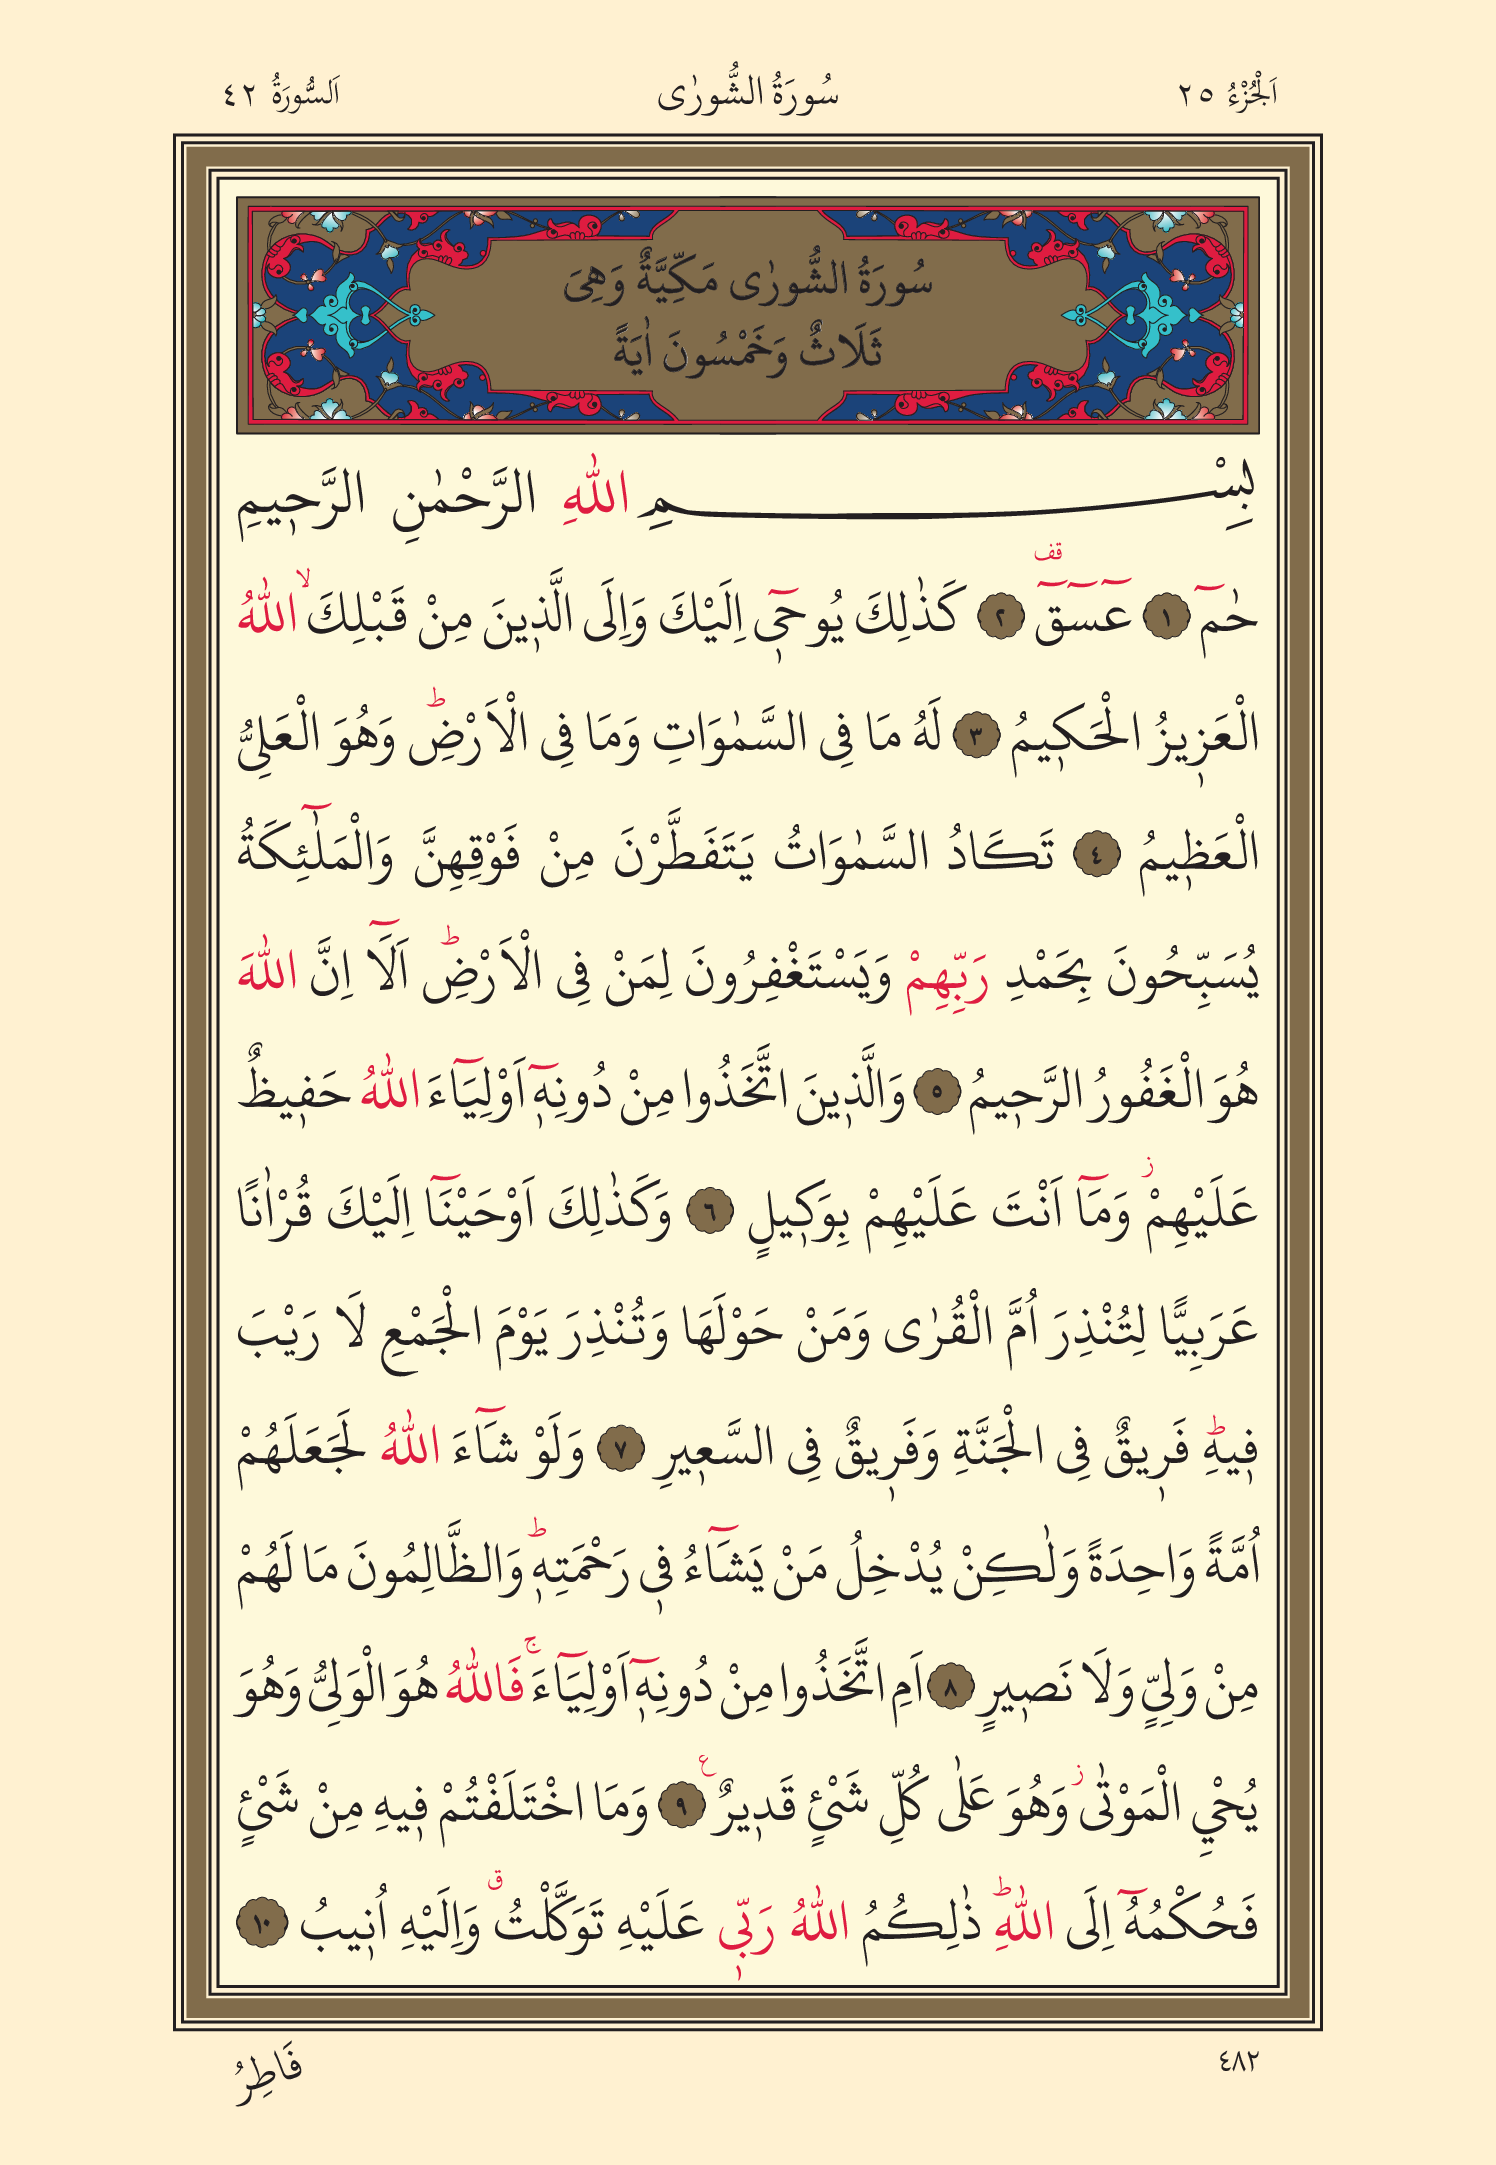 اَلْجُزْءُ ٢٥
سُورَةُ الشُّورٰى
اَلسُّورَةُ ٤٢
سُورَةُ الشُّورٰى مَكِّيَّةٌ وَهِىَ
ثَلَاثٌ وَخَمْسُونَ اٰيَةً
بِسْمِ اللّٰهِ الرَّحْمٰنِ الرَّحٖيمِ
حٰمٓ ١ عٓسٓقٓ قف ٢ كَذٰلِكَ يُوحٖٓى اِلَيْكَ وَاِلَى الَّذٖينَ مِنْ قَبْلِكَۙ اللّٰهُ
الْعَزٖيزُ الْحَكٖيمُ ٣ لَهُ مَا فِى السَّمٰوَاتِ وَمَا فِى الْاَرْضِؕ وَهُوَ الْعَلِىُّ
الْعَظٖيمُ ٤ تَكَادُ السَّمٰوَاتُ يَتَفَطَّرْنَ مِنْ فَوْقِهِنَّ وَالْمَلٰٓئِكَةُ
يُسَبِّحُونَ بِحَمْدِ رَبِّهِمْ وَيَسْتَغْفِرُونَ لِمَنْ فِى الْاَرْضِؕ اَلَٓا اِنَّ اللّٰهَ
هُوَ الْغَفُورُ الرَّحٖيمُ ٥ وَالَّذٖينَ اتَّخَذُوا مِنْ دُونِهٖٓ اَوْلِيَٓاءَ اللّٰهُ حَفٖيظٌ
عَلَيْهِمْؗ وَمَٓا اَنْتَ عَلَيْهِمْ بِوَكٖيلٍ ٦ وَكَذٰلِكَ اَوْحَيْنَٓا اِلَيْكَ قُرْاٰنًا
عَرَبِيًّا لِتُنْذِرَ اُمَّ الْقُرٰى وَمَنْ حَوْلَهَا وَتُنْذِرَ يَوْمَ الْجَمْعِ لَا رَيْبَ
فٖيهِؕ فَرٖيقٌ فِى الْجَنَّةِ وَفَرٖيقٌ فِى السَّعٖيرِ ٧ وَلَوْ شَٓاءَ اللّٰهُ لَجَعَلَهُمْ
اُمَّةً وَاحِدَةً وَلٰكِنْ يُدْخِلُ مَنْ يَشَٓاءُ فٖى رَحْمَتِهٖؕ وَالظَّالِمُونَ مَا لَهُمْ
مِنْ وَلِىٍّ وَلَا نَصٖيرٍ ٨ اَمِ اتَّخَذُوا مِنْ دُونِهٖٓ اَوْلِيَٓاءَۚ فَاللّٰهُ هُوَ الْوَلِىُّ وَهُوَ
يُحْيِ الْمَوْتٰىؗ وَهُوَ عَلٰى كُلِّ شَىْءٍ قَدٖيرٌ ع ٩ وَمَا اخْتَلَفْتُمْ فٖيهِ مِنْ شَىْءٍ
فَحُكْمُهُٓ اِلَى اللّٰهِؕ ذٰلِكُمُ اللّٰهُ رَبّٖى عَلَيْهِ تَوَكَّلْتُ ق وَاِلَيْهِ اُنٖيبُ ١٠
٤٨٢
فَاطِرُ